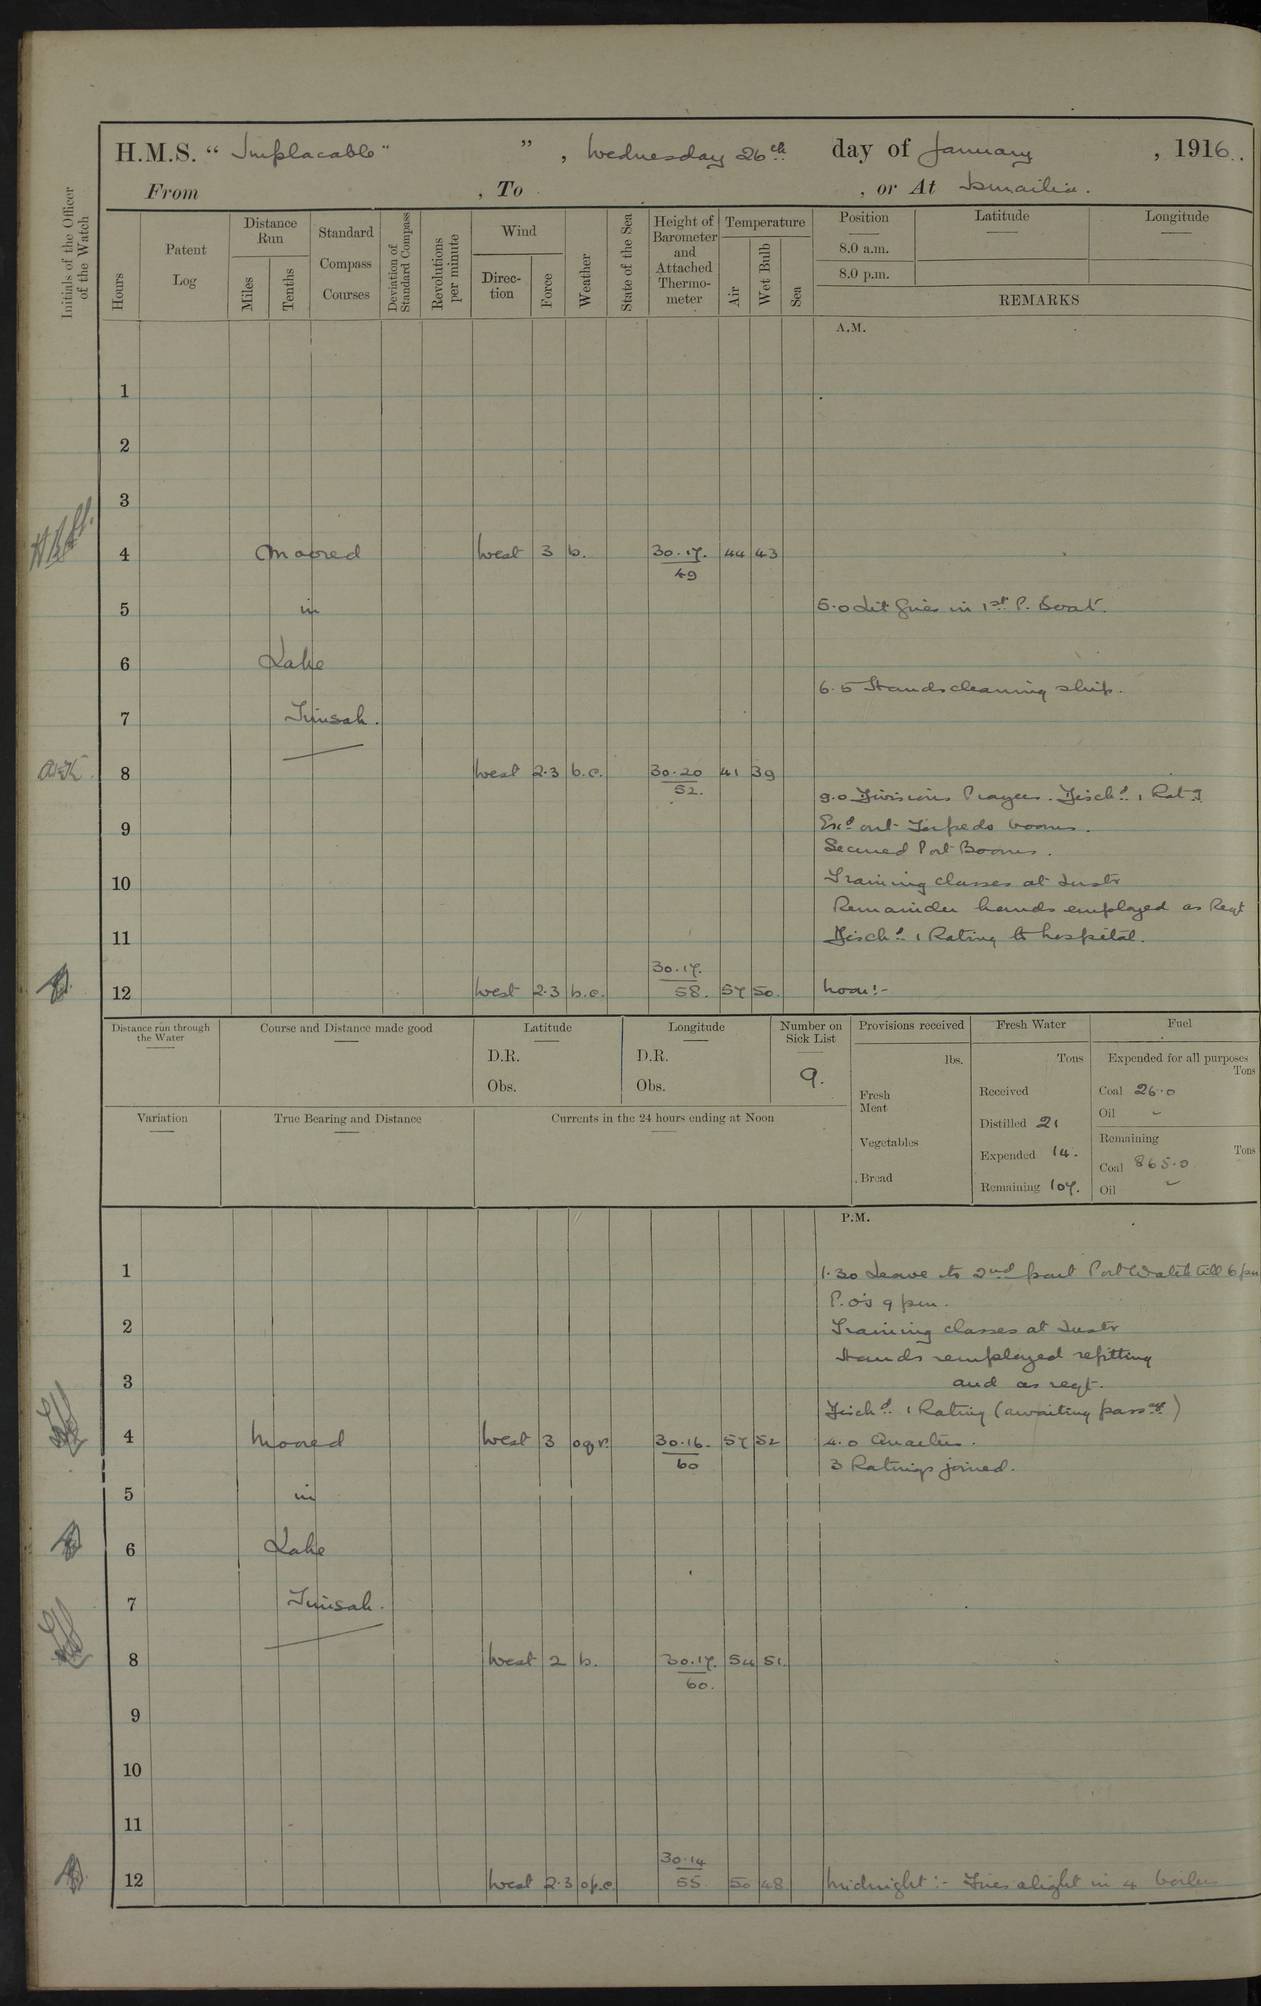 H.M.S. " Implacable " ", Wednesday 26th day of January, 1916.
From , To , or At Ismailia.
Initials of the Officer of the Watch
Hours
Patent Log
Distance Run
Miles
Tenths
Standard Compass Courses
Deviation of Standard Compass
Revolutions per minute
Wind
Direction
Force
Weather
State of the Sea
Height of Barometer and Attached Thermometer
Temperature
Air
Wet Bulb
Sea
Position
8.0 a.m.
8.0 p.m.
Latitude
Longitude
REMARKS
A.M.
1
2
3
4 Moored West 3 b. 30.17. 44 43
49
5 in 5.0 Lit fires in 1st P. Boat.
6 Lake
6.5 Hands cleaning ship.
7 Timsah.
8 West 2.3 b.c. 30.20 41 39
52.
9.0 Divisions Prayers. Disch.d 1 Rat.g
9 Ex.d out Torpedo booms.
Secured Port Booms.
10 Training classes at Instr
Remainder hands employed as Reqt
11 Disch.d 1 Rating to hospital.
30.17.
12 West 2.3 b.c. 58. 57 50. Noon:-
Distance run through the Water
Course and Distance made good
Latitude
D.R.
Obs.
Longitude
D.R.
Obs.
Number on Sick List
9.
Provisions received
lbs.
Fresh Meat
Vegetables
Bread
Fresh Water
Tons
Received
Distilled 21
Expended 14.
Remaining 107.
Fuel
Expended for all purposes
Tons
Coal 26.0
Oil ~
Remaining
Tons
Coal 865.0
Oil ~
Variation
True Bearing and Distance
Currents in the 24 hours ending at Noon
P.M.
1 1.30 Leave to 2nd part Port Watch till 6 pm
P.O's 9 pm.
2 Training classes at Instr
Hands employed refitting
3 and as reqt.
Disch.d 1 Rating (awaiting passge)
4 Moored West 3 oqr. 30.16. 57 52 4.0 Quarters.
60 3 Ratings joined.
5 in
6 Lake
7 Timsah.
8 West 2 b. 30.17. 54 51.
60.
9
10
11
30.14
12 West 2.3 op.c. 55. 50 48 Midnight:- Fires alight in 4 boilers